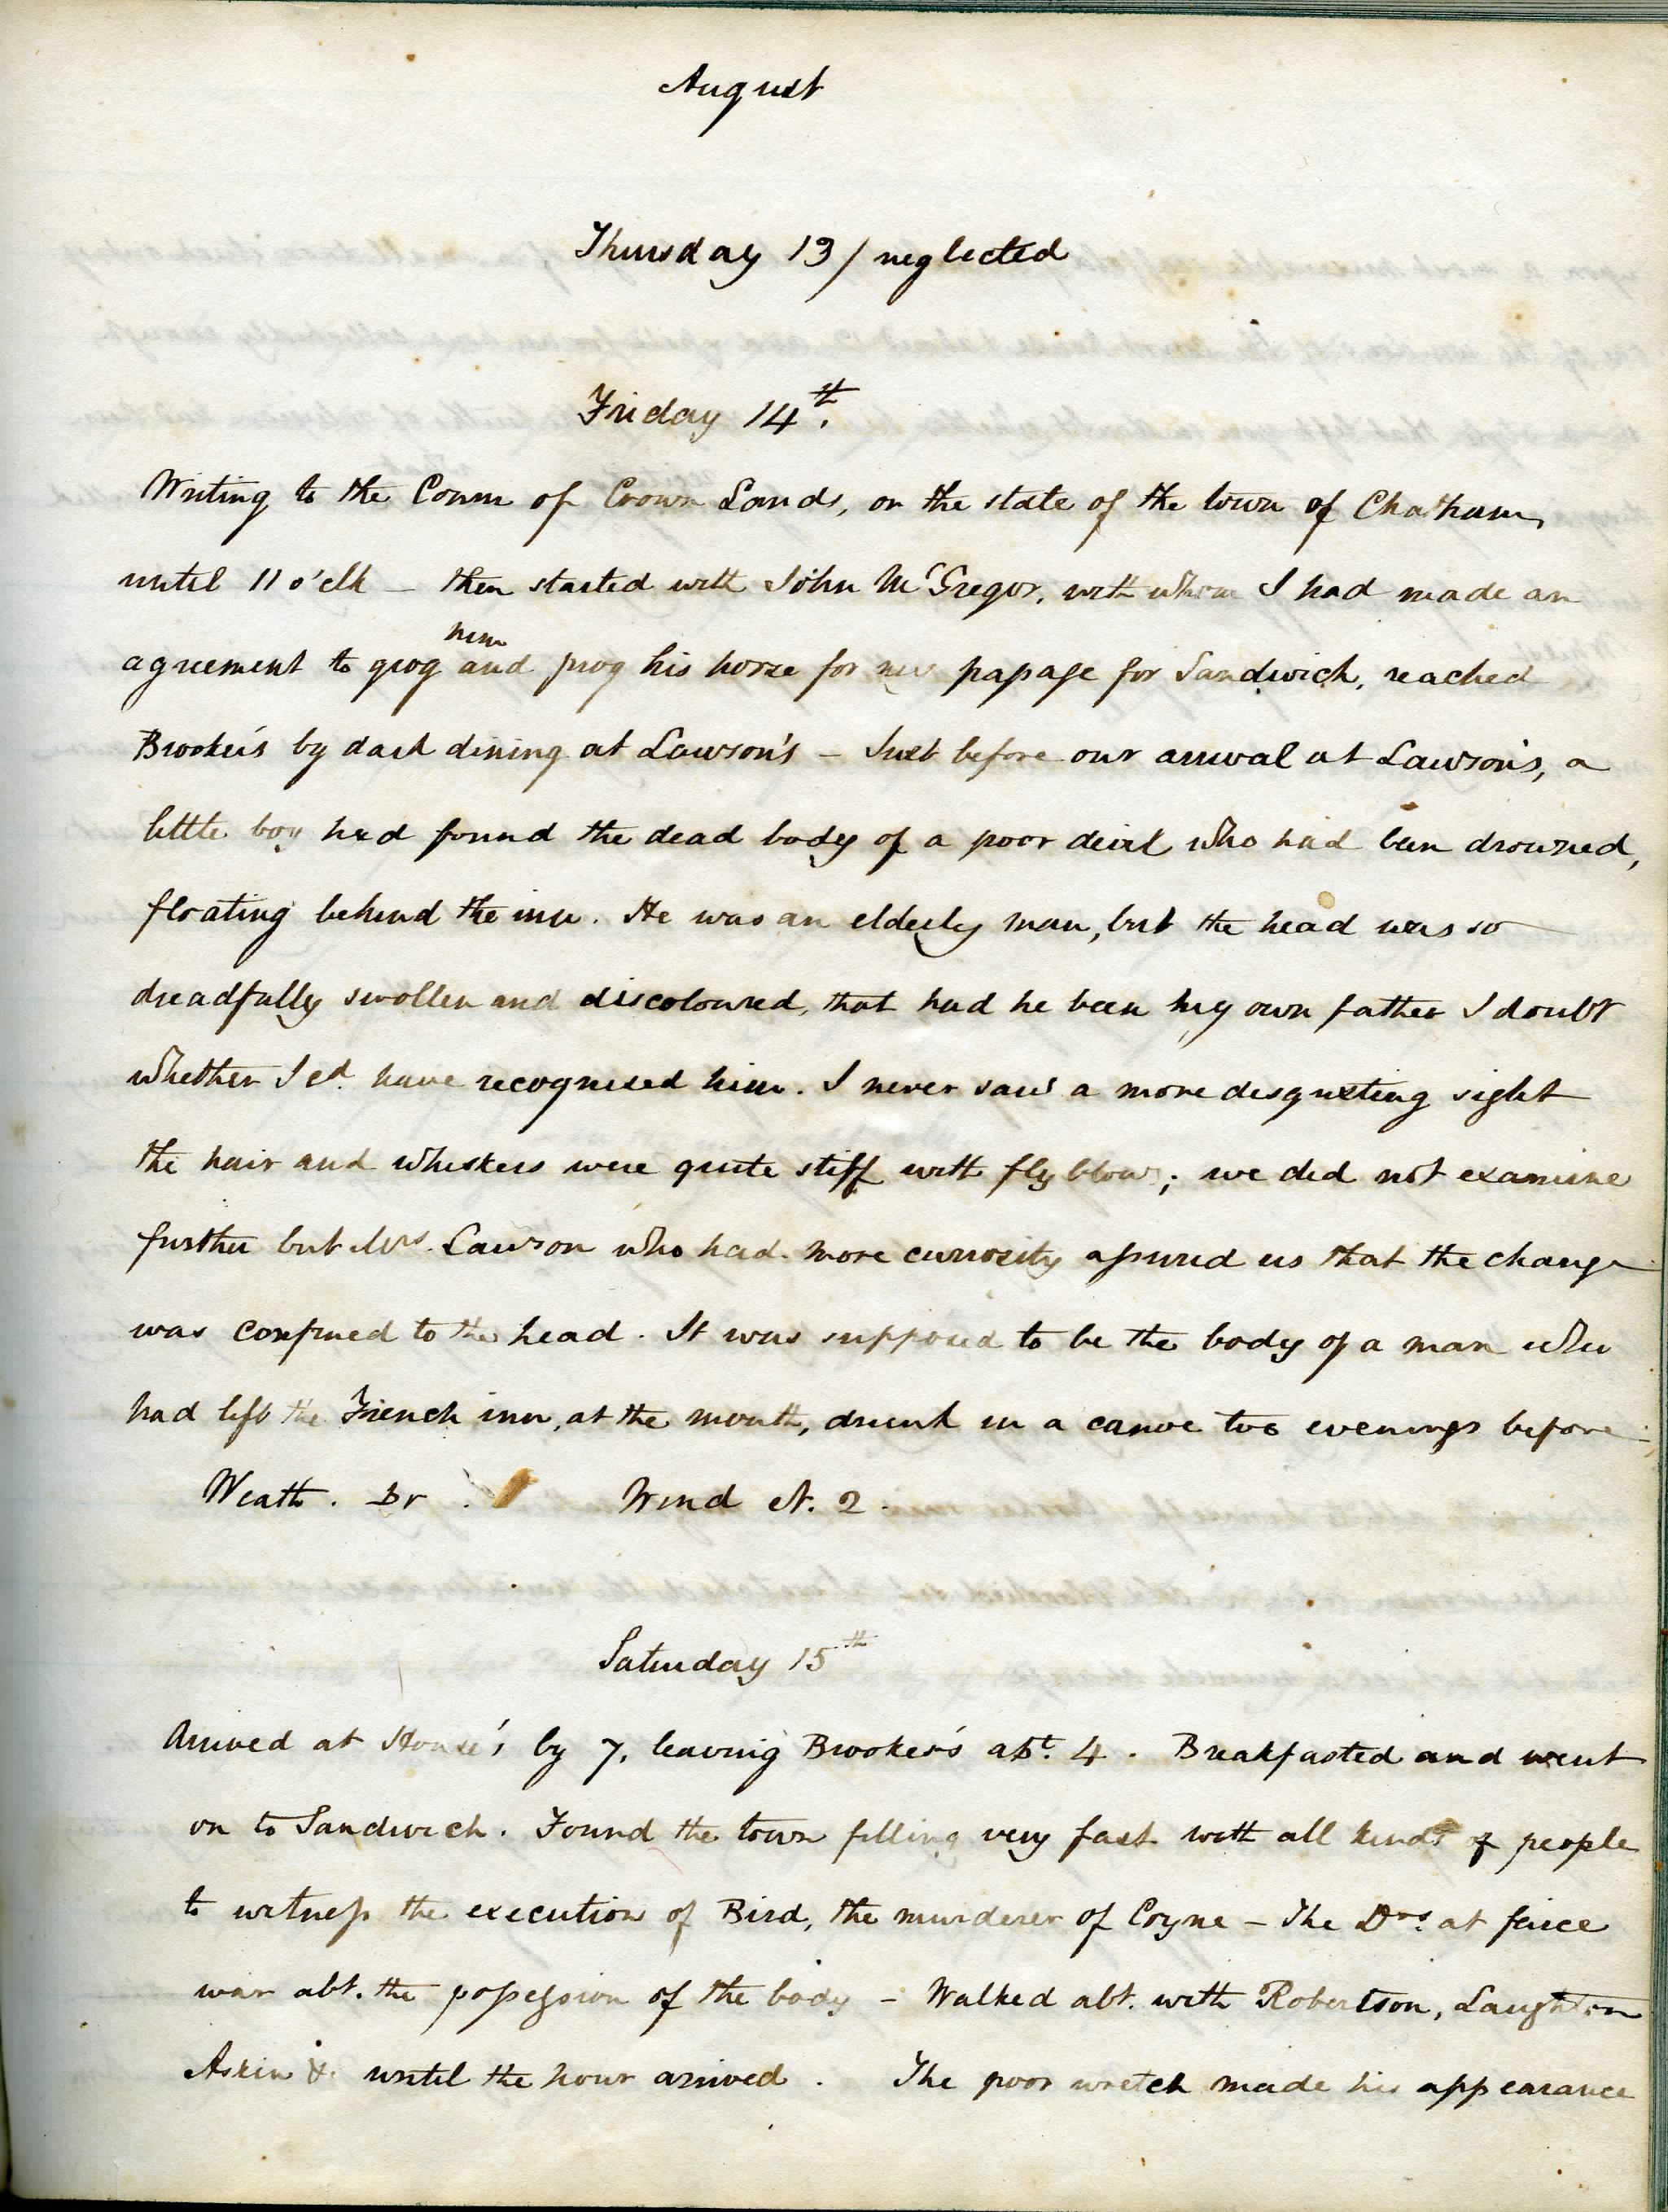 August
Thursday 13 / neglected
Friday 14th.
Writing to the Comm of Crown Lands, on the state of the town of Chatham,
until 11 o'clk – then started with John McGregor, with whom I had made an
him
agreement to grog and prog his horse for my passage for Sandwich, reached
Brooker's by dark dining at Lawson's – Just before our arrival at Lawson's, a
little boy had found the dead body of a poor devil who had been drowned,
floating behind the inn. He was an elderly man, but the head was so
dreadfully swollen and discoloured, that had he been my own father I doubt
whether I cd. have recognised him. I never saw a more disgusting sight
the hair and whiskers were quite stiff with fly blows; we did not examine
further but Mrs. Lawson who had more curiosity assured us that the change
was confined to the head. It was supposed to be the body of a man who
had left the French inn, at the mouth, drunk in a canoe two evenings before –
Weath. Br. Wind N. 2.
Saturday 15th
Arrived at by 7, leaving Brooker's abt. 4. Breakfasted and went
on to Sandwich. Found the town filling very fast with all kinds of people
to witness the execution of Bird, the murderer of Coyne – The Drs. at feirce
war abt. the possession of the body – Walked abt. with Robertson, Laughton
Askin &c until the hour arrived. The poor wretch made his appearance